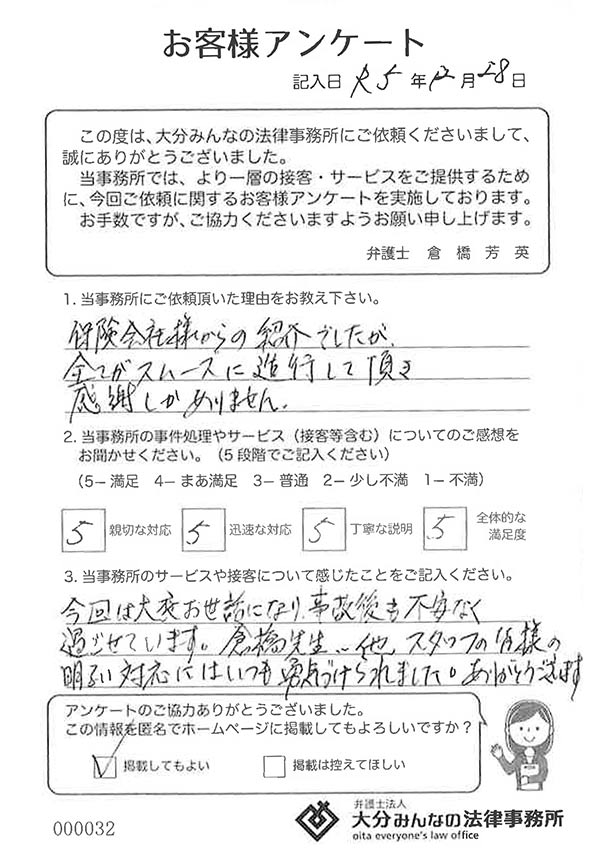 お客様アンケート
記入日 R5年12月28日
この度は、大分みんなの法律事務所にご依頼くださいまして、
誠にありがとうございました。
当事務所では、より一層の接客・サービスをご提供するため
に、今回ご依頼に関するお客様アンケートを実施しております。
お手数ですが、ご協力くださいますようお願い申し上げます。
弁護士 倉橋芳英
1. 当事務所にご依頼頂いた理由をお教え下さい。
保険会社様からの紹介でしたが、
全てがスムースに進行して頂き
感謝しかありません。
2. 当事務所の事件処理やサービス（接客等含む）についてのご感想を
お聞かせください。（5段階でご記入ください）
（5－満足 4－まあ満足 3－普通 2－少し不満 1－不満）
5 親切な対応 5 迅速な対応 5 丁寧な説明 5 全体的な
満足度
3. 当事務所のサービスや接客について感じたことをご記入ください。
今回は大変お世話になり、事故後も不安なく
過ごせています。倉橋先生、他、スタッフの皆様の
明るい対応にはいつも勇気づけられました。ありがとうございます
アンケートのご協力ありがとうございました。
この情報を匿名でホームページに掲載してもよろしいですか？
掲載してもよい 掲載は控えてほしい
000032
弁護士法人
大分みんなの法律事務所
oita everyone's law office